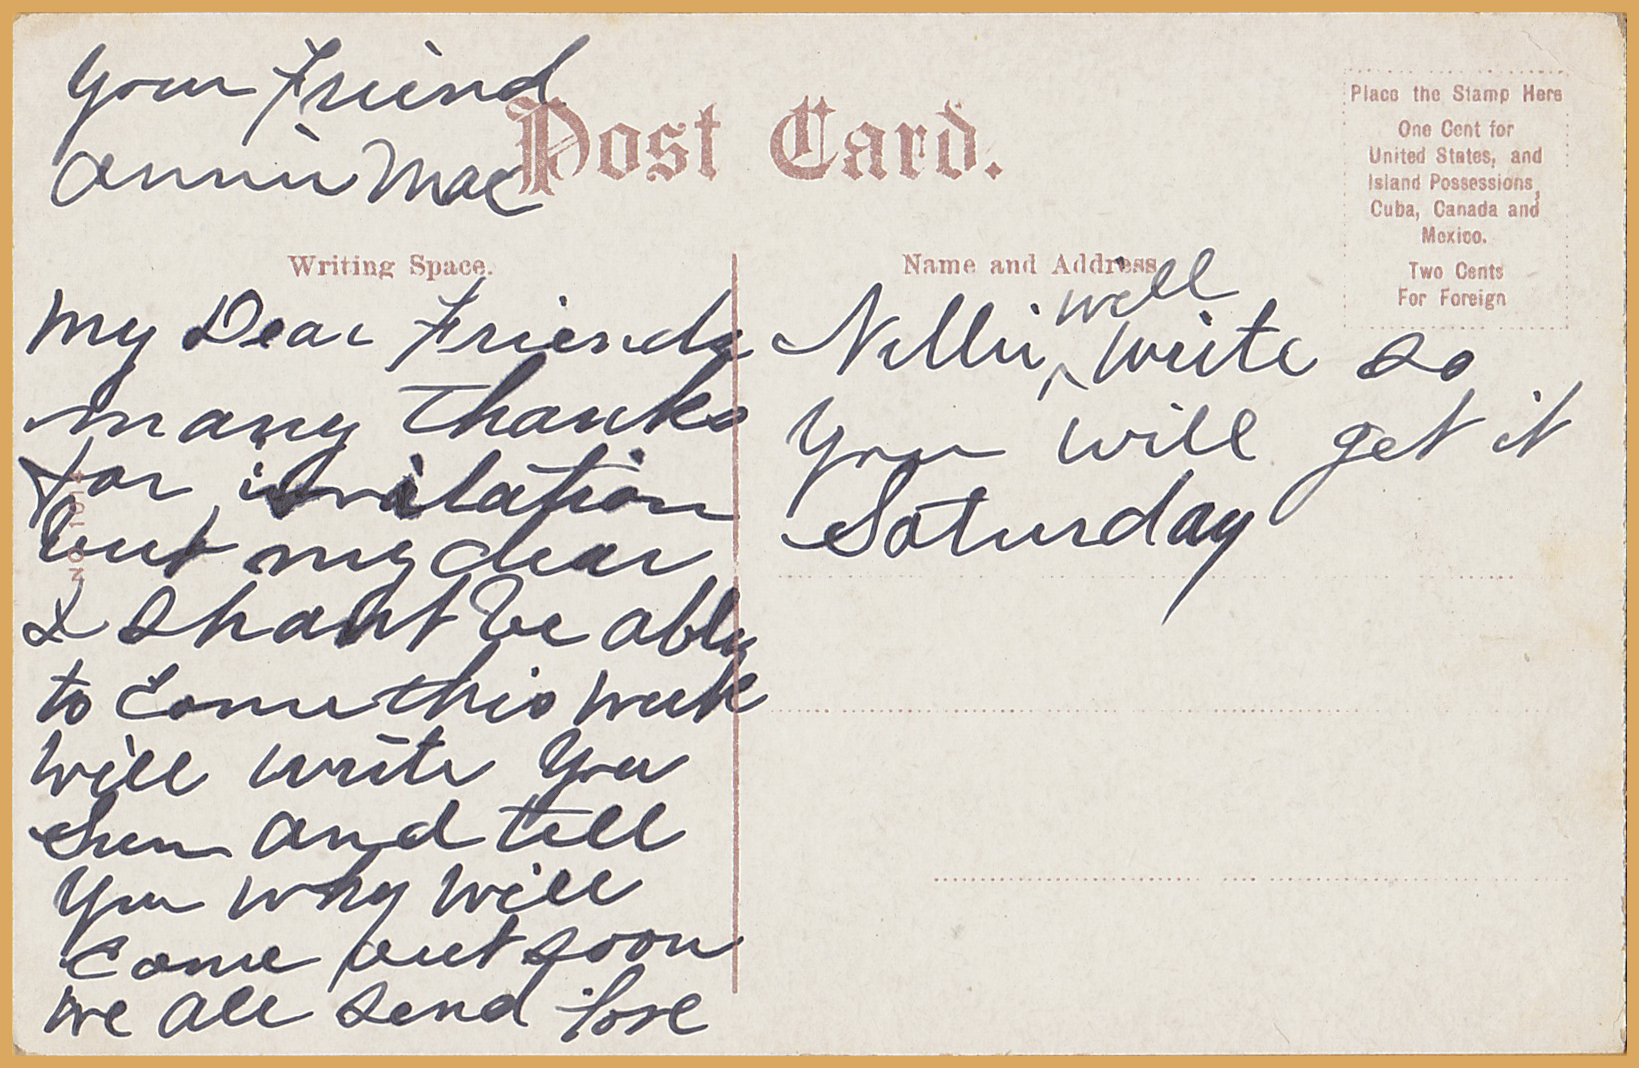 Your Friend
Annie Mae
Post Card.
Place the Stamp Here
One Cent for
United States, and
Island Possessions,
Cuba, Canada and
Mexico.
Two Cents
For Foreign
Writing Space.
My Dear Friend
many thanks
for invitation
but my dear
I shant be able
to Come this week
will write you
Soon and tell
you why will
come out soon
we all send love
Name and Address.
well
Nellie ^ write so
you will get it
Saturday